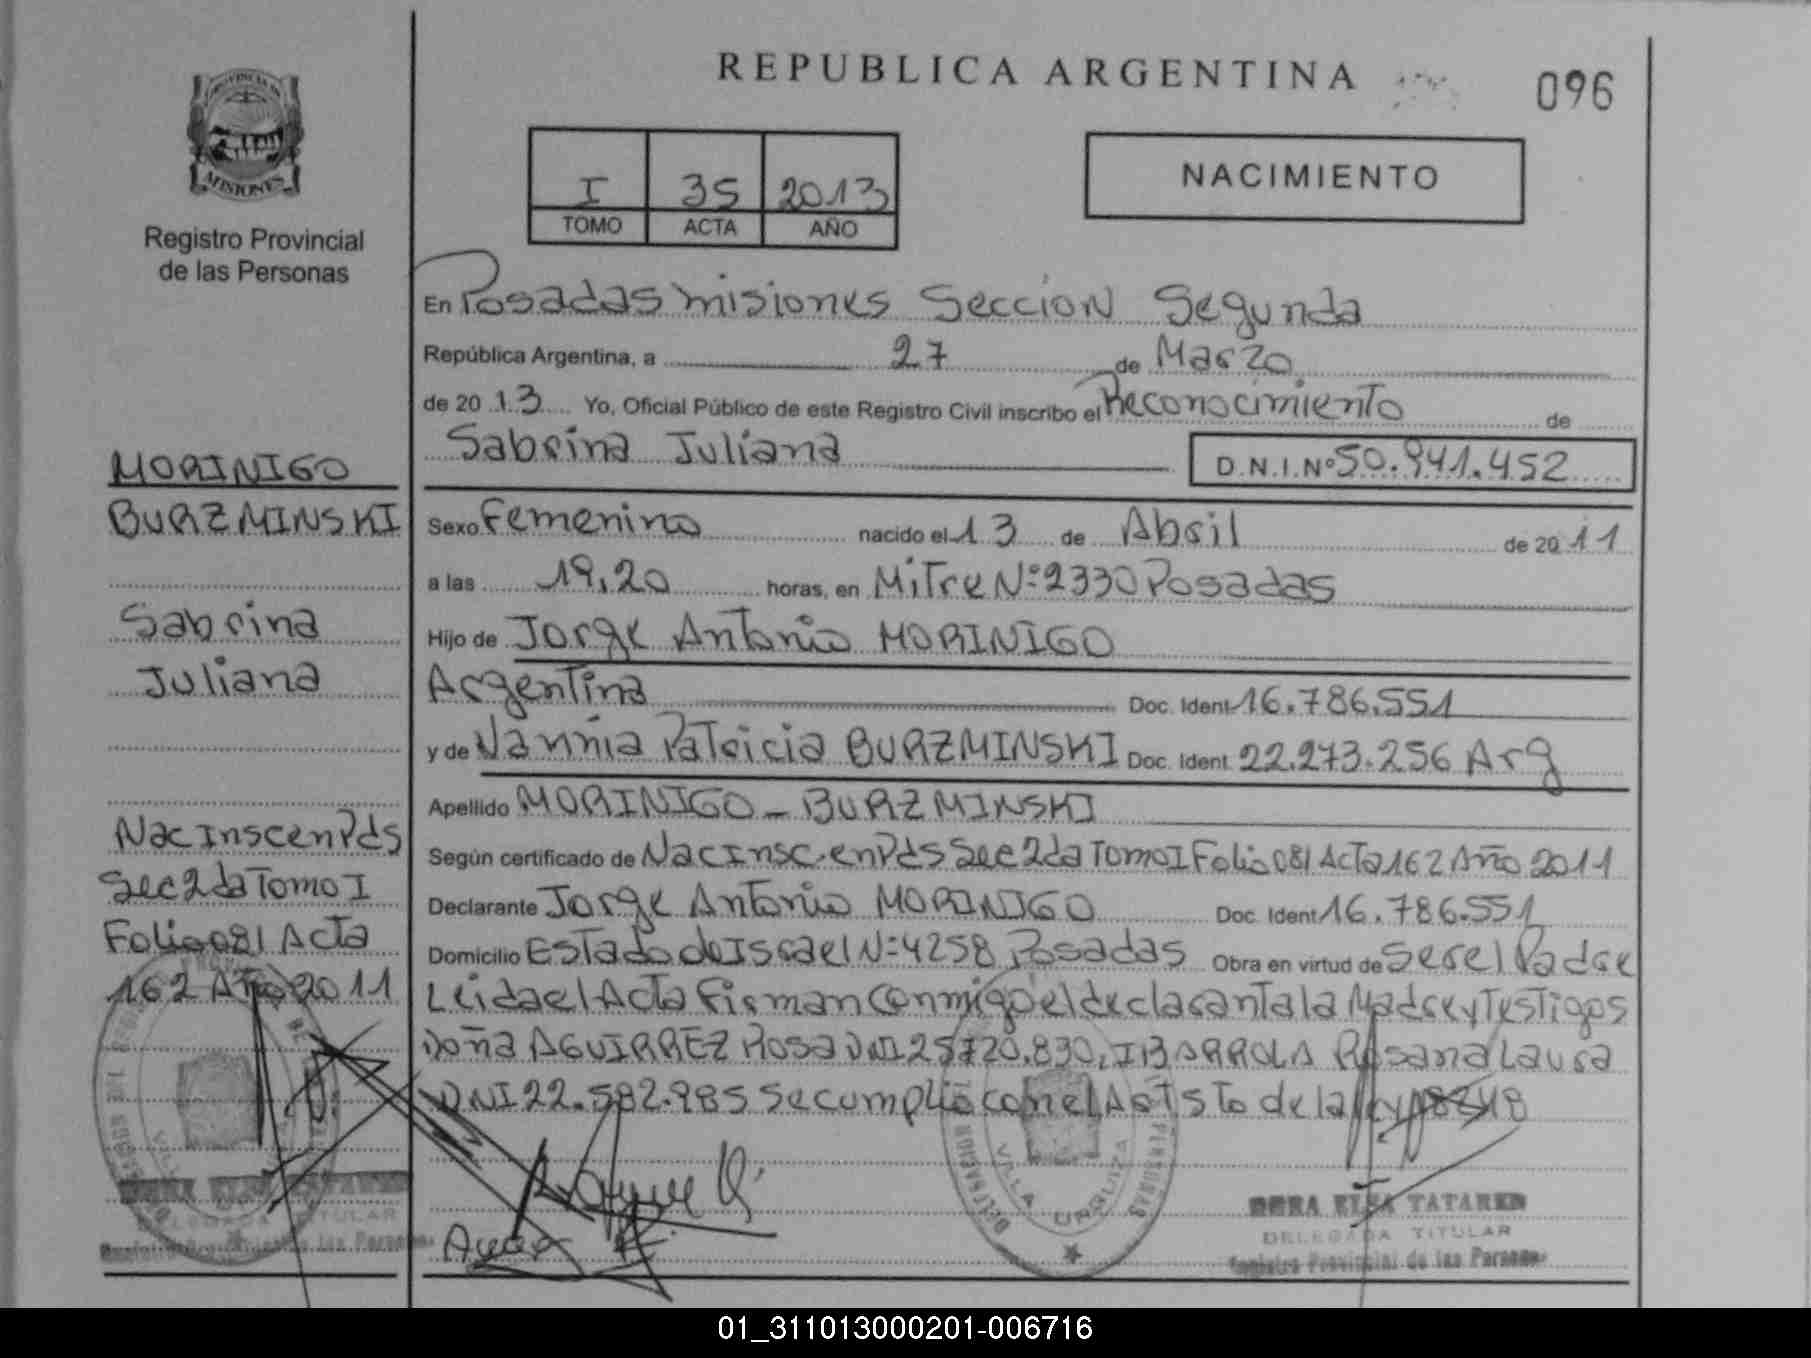 REPUBLICA ARGENTINA
096
PROVINCIA DE
MISIONES
Registro Provincial
de las Personas
I 35 2013
TOMO ACTA AÑO
NACIMIENTO
En Posadas misiones Seccion Segunda
República Argentina, a 27 de Marzo
de 20 13 Yo, Oficial Público de este Registro Civil inscribo el Reconocimiento de
Sabrina Juliana D.N.I.Nº 50.941.452
Sexo Femenino nacido el 13 de Abril de 20 11
a las 19,20 horas, en Mitre Nº 2330 Posadas
Hijo de Jorge Antonio MORINIGO
Argentina Doc. Ident 16.786.551
y de Vannia Patricia BURZMINSKI Doc. Ident 22.273.256 Arg
Apellido MORINIGO - BURZMINSKI
Según certificado de Nac Insc. en Pds Sec 2da Tomo I Folio 081 Acta 162 Año 2011
Declarante Jorge Antonio MORINIGO Doc. Ident 16.786.551
Domicilio Estado de Israel Nº 4258 Posadas Obra en virtud de Ser el Padre
Leida el Acta Firman Conmigo el declarante la Madre y Testigos
Doña AGUIRREZ Rosa DNI 25720.830, IBARROLA Rosana Laura
DNI 22.582.985 Se cumplio con el Art 5to de la
MORINIGO
BURZMINSKI
Sabrina
Juliana
Nac Insc en Pds
Sec 2da Tomo I
Folio 081 Acta
162 Año 2011
VILLA URQUIZA
ELSA TATAREN
DELEGADA TITULAR
Registro Provincial de las Personas
DELEGADA TITULAR
01_311013000201-006716